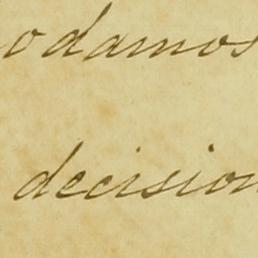 odamos
decision